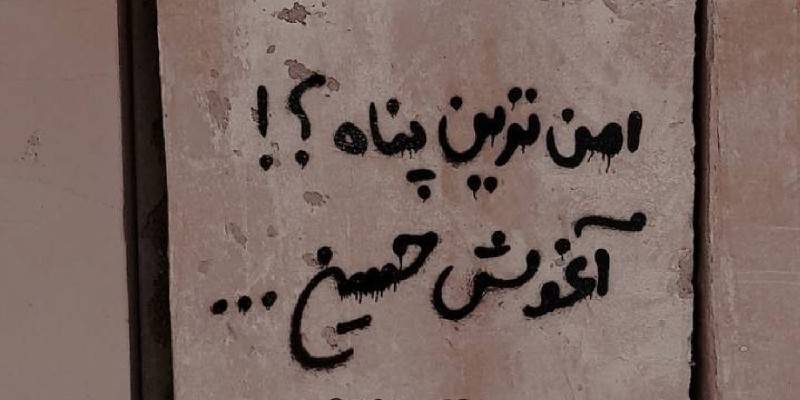 امن ترین پناه ؟!
آغوش حسین ...